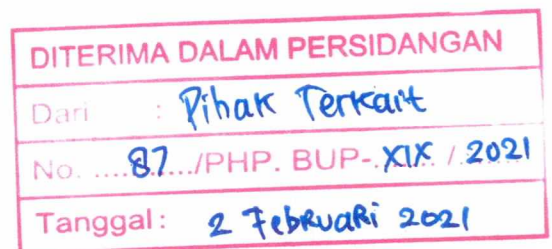 DITERIMA DALAM PERSIDANGAN
Dari : Pihak Terkait
No. ....87.../PHP. BUP-.XIX.. /.2021
Tanggal : 2 Februari 2021